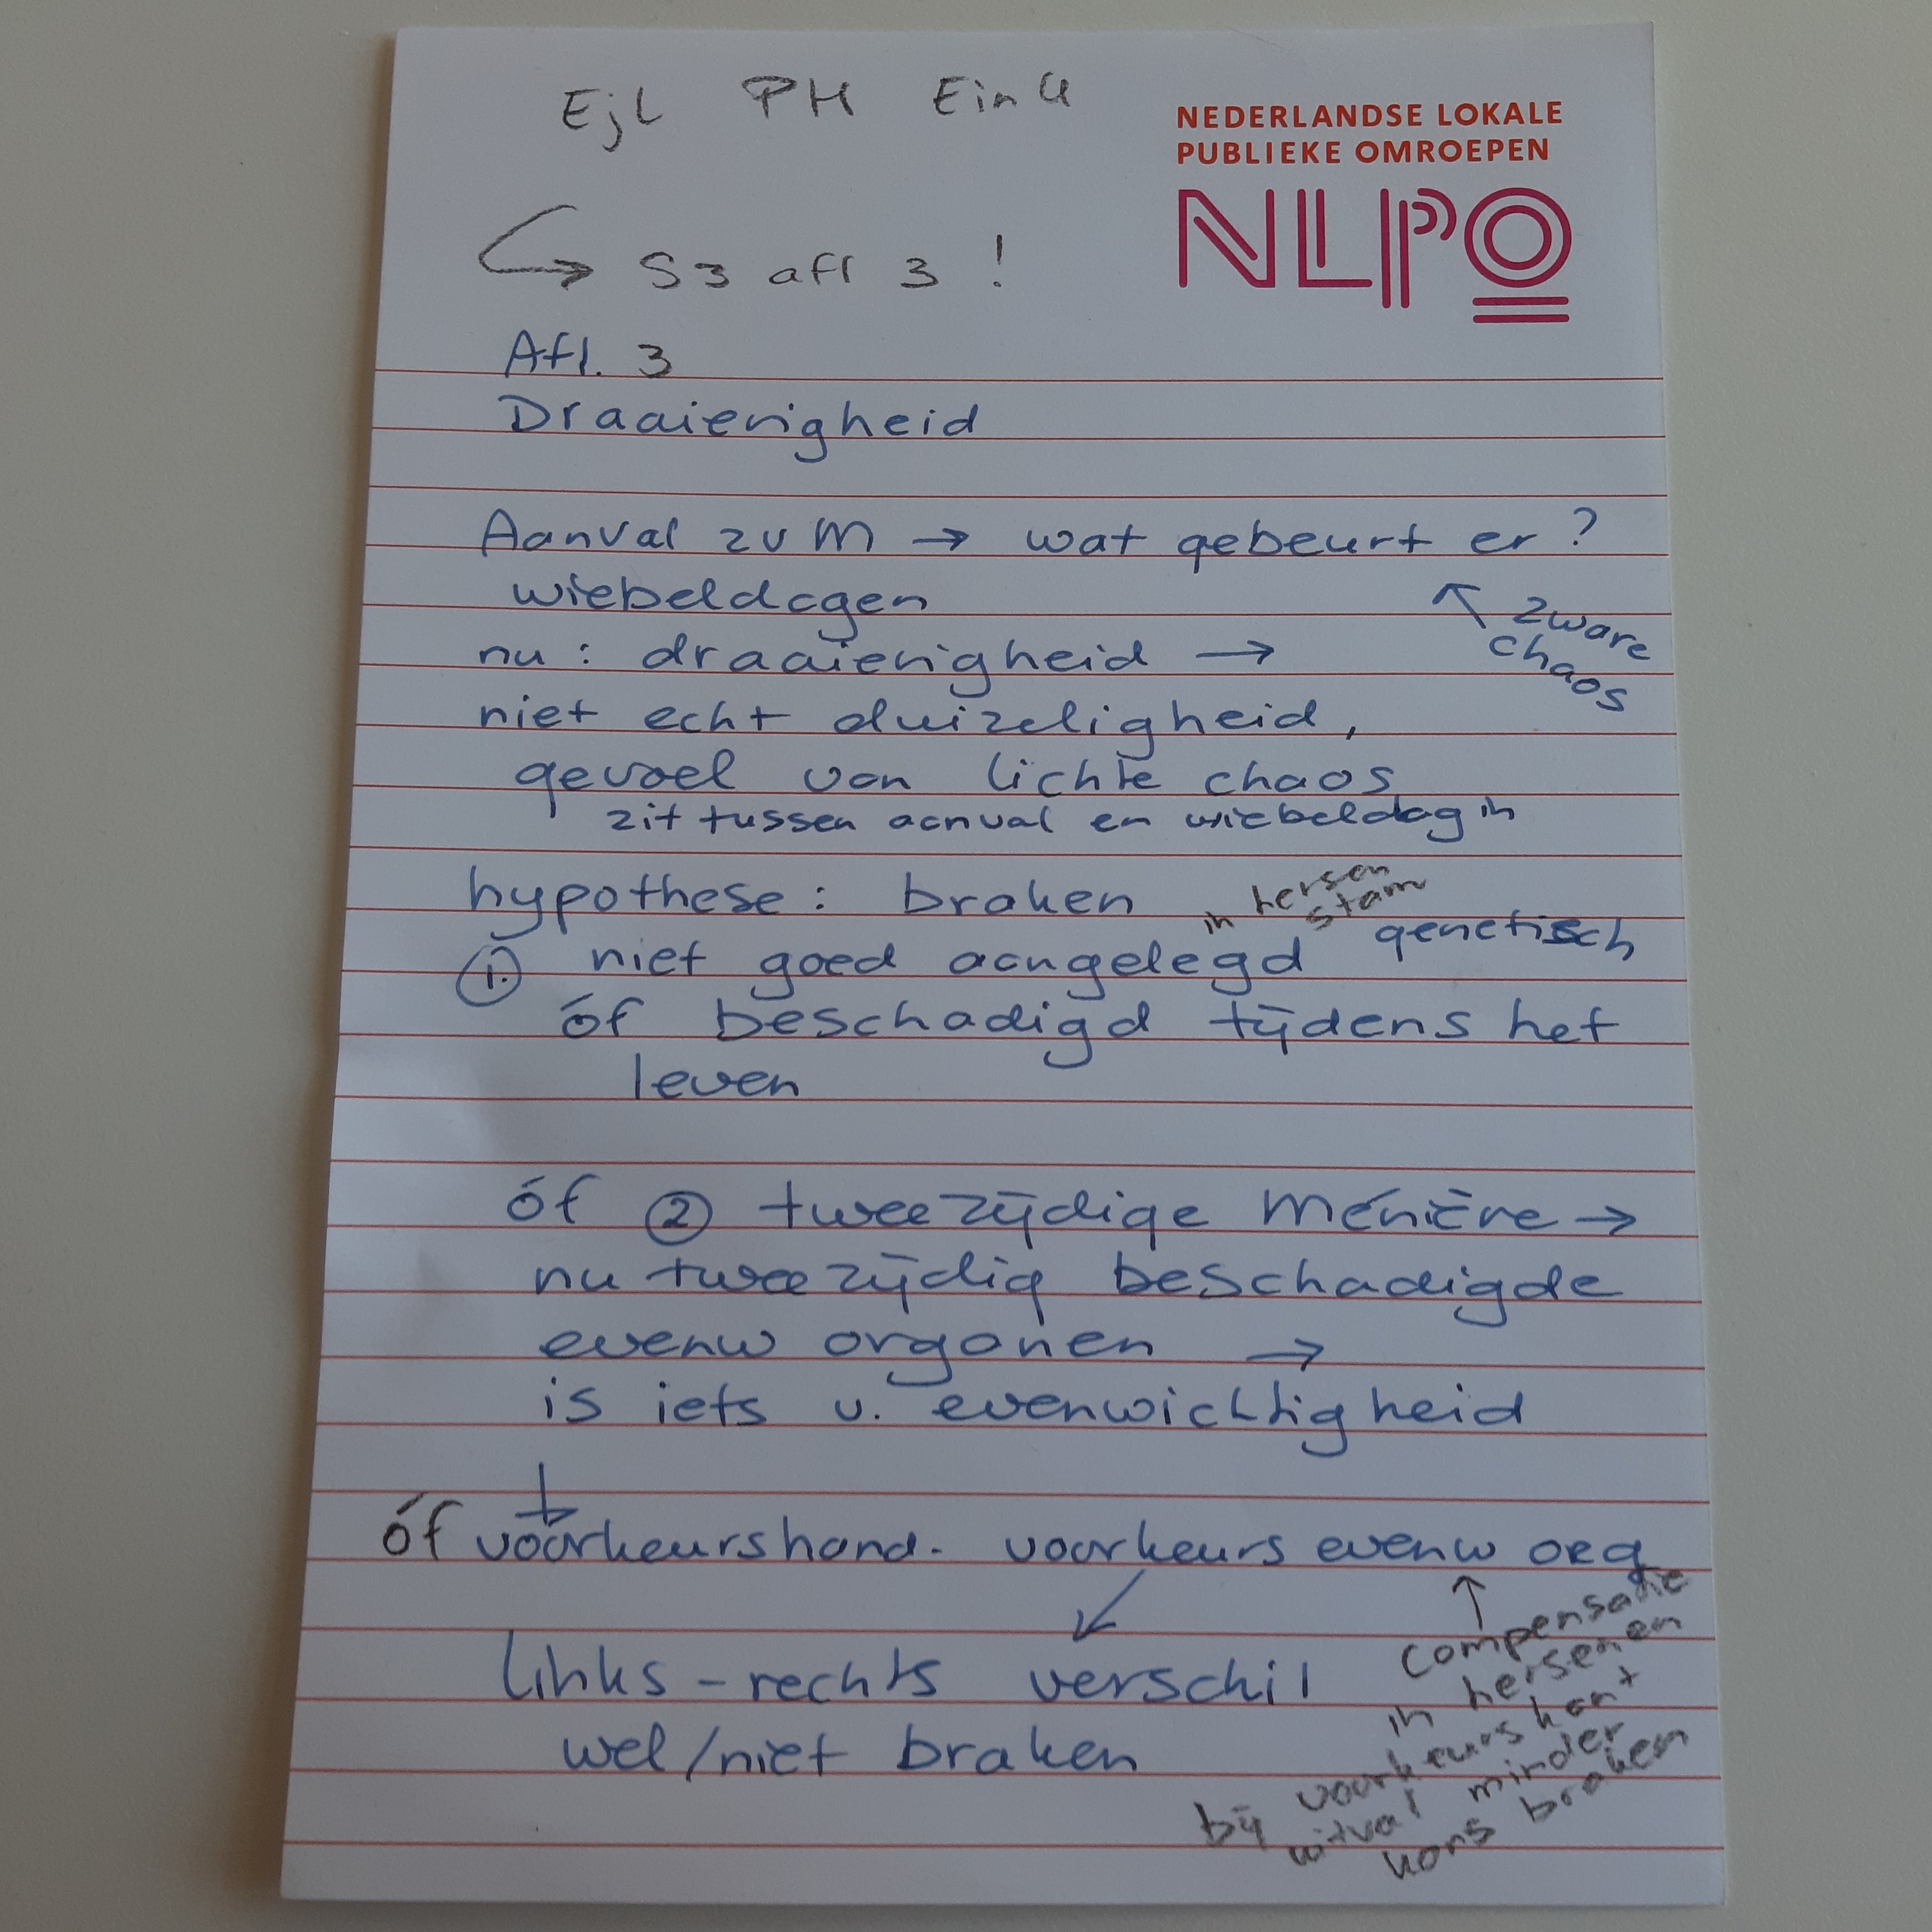 Ejl PH Eink
NEDERLANDSE LOKALE
PUBLIEKE OMROEPEN
NLPO
S3 afl 3 !
Afl. 3
Draaierigheid
Aanval zv M → wat gebeurt er ?
wiebeldagen
↖ zware
chaos
nu : draaierigheid →
niet echt duizeligheid,
gevoel van lichte chaos
zit tussen aanval en wiebeldag in
hypothese : braken
in hersen
stam
① niet goed aangelegd genetisch
óf beschadigd tijdens het
leven
óf ② tweezijdige Ménière →
nu tweezijdig beschadigde
evenw organen →
is iets v. evenwichtigheid
óf voorkeurshand. voorkeurs evenw org
links - rechts verschil
wel/niet braken
↑
compensatie
in hersenen
bij voorkeurskant
uitval minder
kans braken